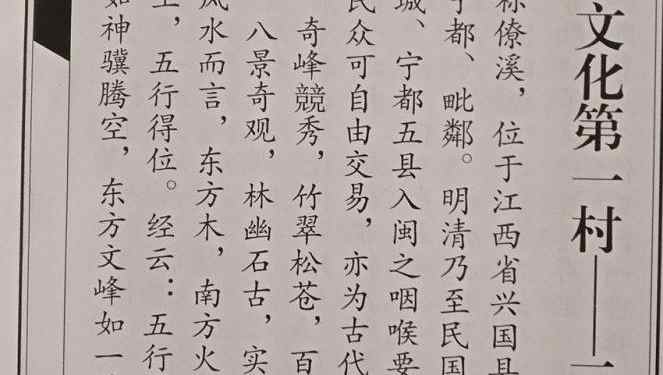 文化第一村——
称僚溪，位于江西省兴国县
于都、毗鄰。明清乃至民国
城、宁都五县入闽之咽喉要
民众可自由交易，亦为古代
奇峰競秀，竹翠松苍，百
八景奇观，林幽石古，实
风水而言，东方木，南方火
土，五行得位。经云：五行
如神骥腾空，东方文峰如一